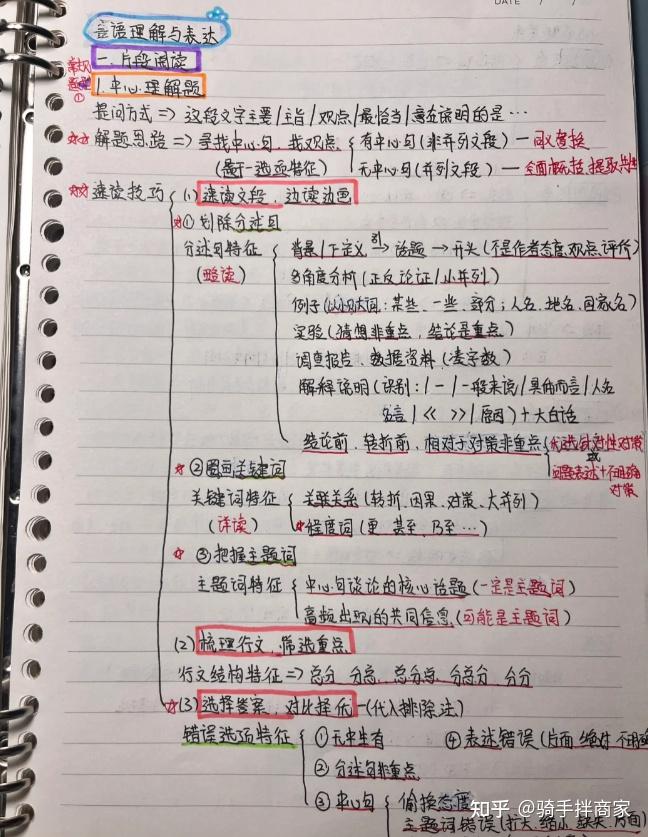 DATE / /
言语理解与表达
一.片段阅读
常规题型①
1.中心理解题
提问方式=>这段文字主要|主旨|观点|最恰当|意在说明的是…
☆☆解题思路=>寻找中心句、找观点
(最于一选项特征)
有中心句(非并列文段)—同义替换
无中心句(并列文段)—全面概括,提取共性
☆☆速读技巧
(1)速读文段、边读边画
☆①划除分述句
分述句特征
(略读)
背景|下定义 引→ 话题→开头(不是作者态度.观点.评价)
多角度分析(正反论证|小并列)
例子(识别大词:某些、一些、部分;人名、地名、国家名)
实验(猜想非重点,结论是重点)
调查报告、数据资料(凑字数)
解释说明(识别:|—|一般来说|具体而言|人名
名言|《 》|原因)+大白话
结论前、转折前、相对于对策非重点
优选针对性对策
或
问题表述+不明确对策
☆②圈画关键词
关键词特征
(详读)
关联关系(转折、因果、对策、大并列)
☆程度词(更、甚至、乃至…)
☆③把握主题词
主题词特征
中心句谈论的核心话题(一定是主题词)
高频出现的共同信息(可能是主题词)
(2)梳理行文、筛选重点
行文结构特征=>总分、分总、总分总、分总分、分分
☆(3)选择答案,对比择优—(代入排除法)
错误选项特征
①无中生有
④表述错误(片面 绝对 不明确
②分述句非重点
③中心句
偷换态度
主题词错误(扩大、缩小、缺失、片面)
知乎 @骑手拌商家